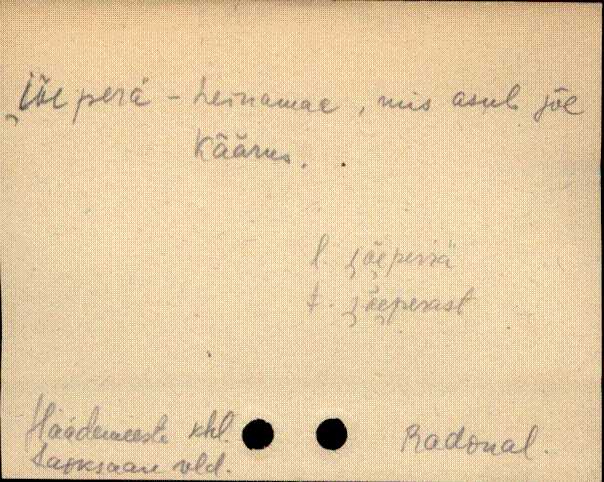 Jõe perä - heinamaa, mis asub jõe
käärus.
l. jõeperrä
t. jõeperast
Häädemeeste khl.
Laoksaare vld.
Radonal.